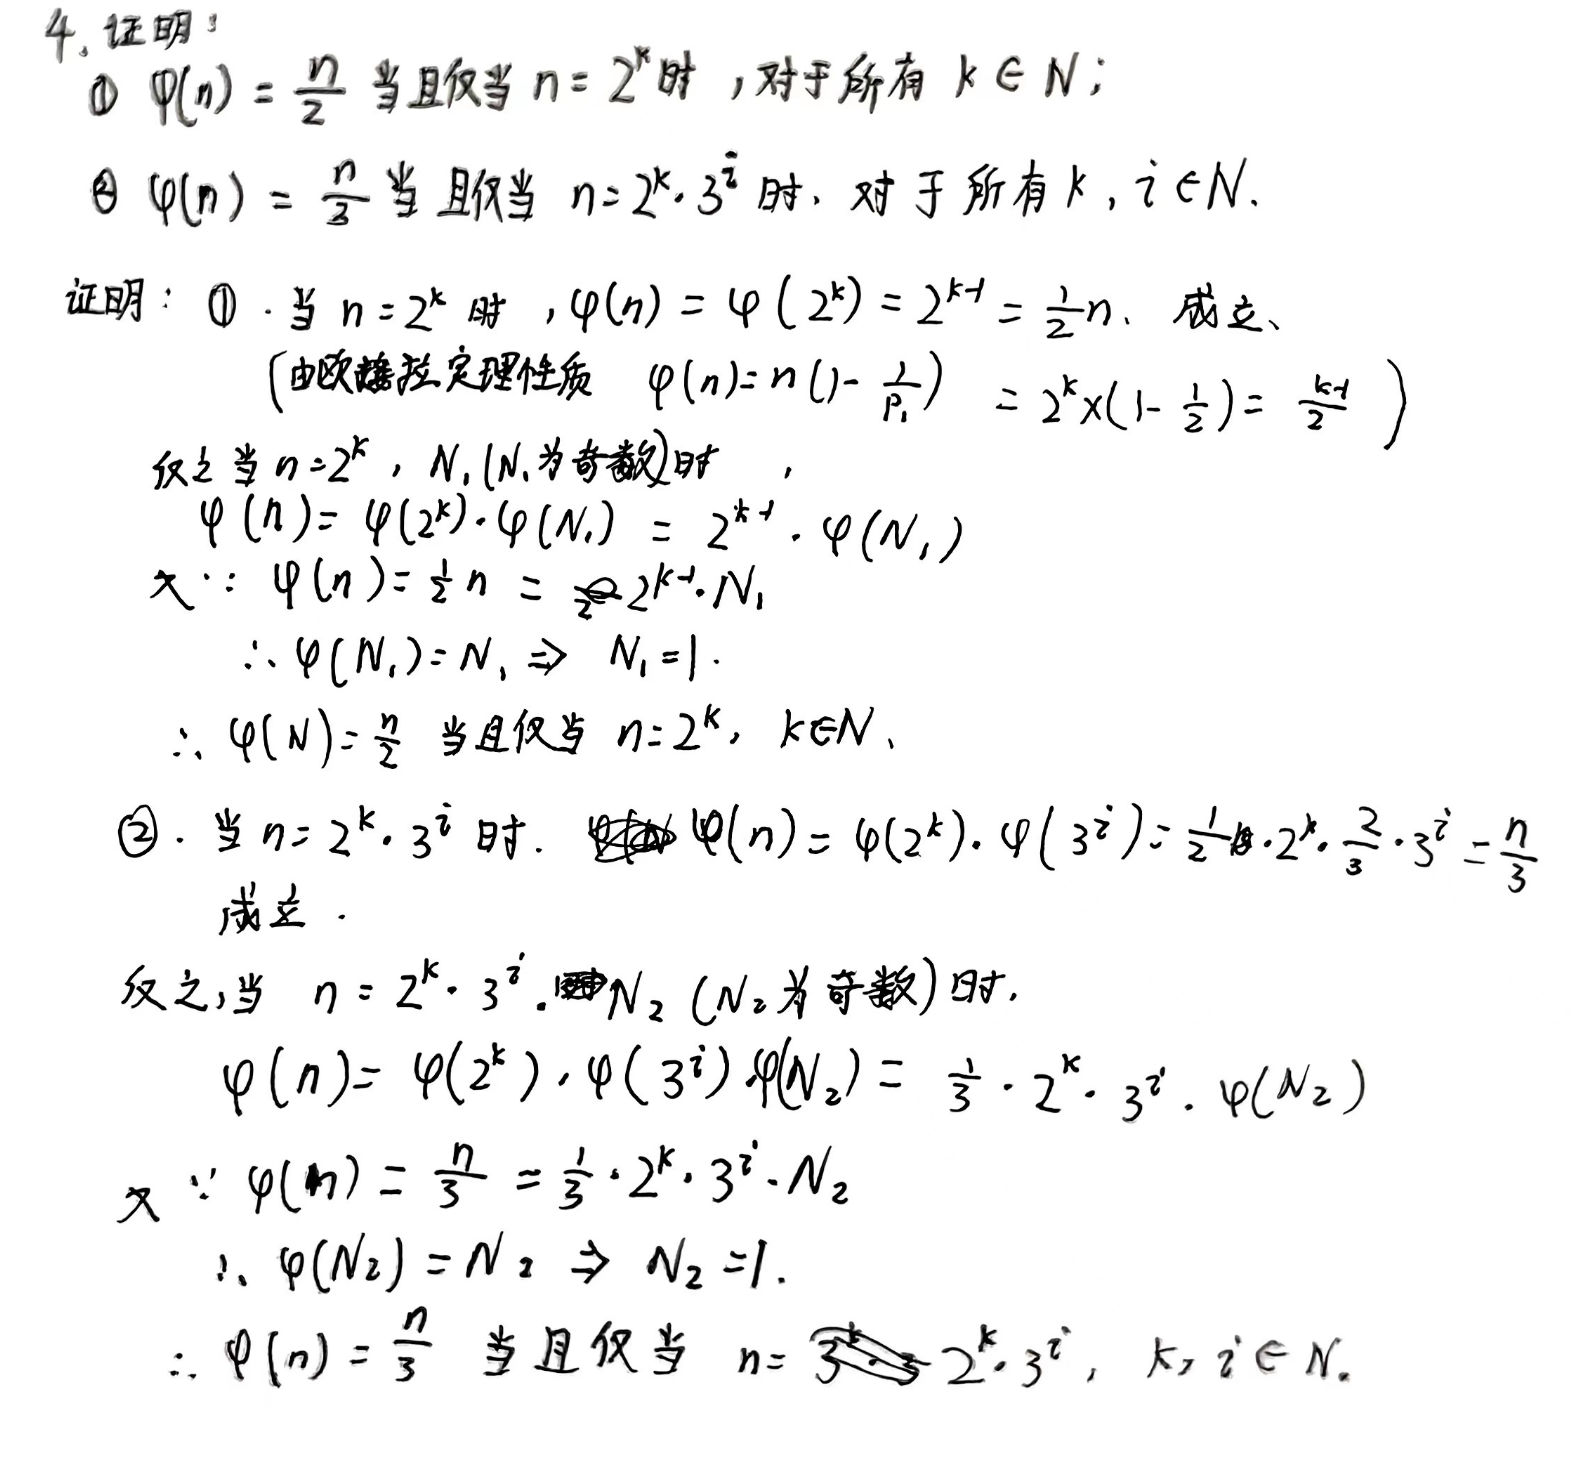 4. 证明：
① φ(n) = n/2 当且仅当 n = 2^k 时，对于所有 k ∈ N；
② φ(n) = n/3 当且仅当 n = 2^k · 3^i 时，对于所有 k, i ∈ N.
证明：①. 当 n = 2^k 时，φ(n) = φ(2^k) = 2^{k-1} = 1/2 n. 成立、
(由欧拉定理性质 φ(n) = n(1 - 1/P₁) = 2^k × (1 - 1/2) = k-1/2 )
反之当 n = 2^k, N₁(N₁为奇数)时，
φ(n) = φ(2^k)·φ(N₁) = 2^{k-1}·φ(N₁)
又∵ φ(n) = 1/2 n = 2^{k-1}·N₁
∴ φ(N₁) = N₁ ⇒ N₁ = 1.
∴ φ(N) = n/2 当且仅当 n = 2^k, k∈N、
②. 当 n = 2^k · 3^i 时. φ(n) = φ(2^k)·φ(3^i) = 1/2 · 2^k · 2/3 · 3^i = n/3
成立.
反之,当 n = 2^k · 3^i · N₂ (N₂为奇数)时,
φ(n) = φ(2^k)·φ(3^i)·φ(N₂) = 1/3 · 2^k · 3^i · φ(N₂)
又∵ φ(n) = n/3 = 1/3 · 2^k · 3^i · N₂
∴ φ(N₂) = N₂ ⇒ N₂ = 1.
∴ φ(n) = n/3 当且仅当 n = 2^k · 3^i, k, i ∈ N.